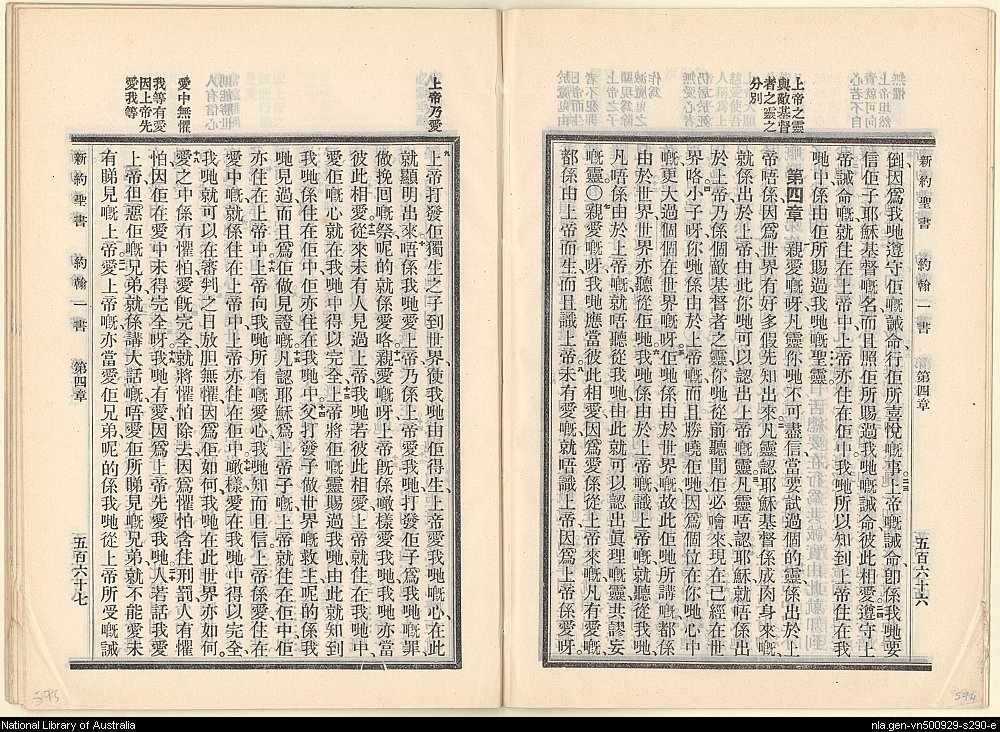 上帝之靈
與敵基督
者之靈之
分別
新約聖書 約翰一書 第四章 五百六十六
倒、因爲我哋遵守佢嘅誡命、行佢所喜悅嘅事。二三上帝嘅誡命、卽係我哋要
信佢子耶穌基督嘅名、而且照佢所賜過我哋嘅誡命彼此相愛。二四遵守上
帝誡命嘅就住在上帝中、上帝亦住在佢中、我哋所以知到上帝住在我
哋中、係由佢所賜過我哋嘅聖靈。
第四章 親愛嘅呀、凡靈你哋不可盡信、當要試過個的靈係出於上
帝唔係、因爲世界有好多假先知出來。二凡靈認耶穌基督係成肉身來嘅、
就係出於上帝、由此你哋可以認出上帝嘅靈。三凡靈唔認耶穌、就唔係出
於上帝、乃係個敵基督者之靈、你哋從前聽聞佢必會來、現在已經在世
界咯。四小子呀、你哋係由於上帝嘅、而且勝曉佢哋、因爲個位在你哋心中
嘅、更大過個個在世界嘅。五佢哋係由於世界嘅、故此佢哋所講嘅、都係
由於世界、世界亦聽從佢哋。六我哋係由於上帝嘅、識上帝嘅就聽從我哋、
凡唔係由於上帝嘅、就唔聽從我哋、由此就可以認出眞理嘅靈共謬妄
嘅靈〇七親愛嘅呀、我哋應當彼此相愛、因愛係從上帝來嘅、凡有愛嘅、
都係由上帝而生、而且識上帝。八未有愛嘅、就唔識上帝、因爲上帝係愛呀。
上帝乃愛
愛中無懼
我等有愛
因上帝先
愛我等
九上帝打發佢獨生之子到世界、使我哋由佢得生、上帝愛我哋嘅心、在此
就顯明出來。十唔係我哋愛上帝、乃係上帝愛我哋、打發佢子爲我哋嘅罪、
做挽回嘅祭、呢的就係愛咯。十一親愛嘅呀、上帝旣係噉樣愛我哋、我哋亦當
彼此相愛。十二從來未有人見過上帝、我哋若彼此相愛、上帝就住在我哋中、
愛佢嘅心、就在我哋中得以完全。十三上帝將佢嘅靈賜過我哋、由此就知到
我哋係住在佢中、佢亦住在我哋中。十四父打發子做世界嘅救主、呢的係我
哋見過、而且爲佢做見證嘅。十五凡認耶穌爲上帝子嘅、上帝就住在佢中、佢
亦住在上帝中。十六上帝向我哋所有嘅愛心、我哋知而且信、上帝係愛、住在
愛中嘅、就係住在上帝中、上帝亦住在佢中。十七噉樣、愛在我哋中得以完全、
我哋就可以在審判之日放胆無懼、因爲佢如何、我哋在此世界亦如何。
十八愛之中係冇懼怕、愛旣完全、就將懼怕除去、因爲懼怕含住刑罰、人有懼
怕、因佢在愛中未得完全呀。十九我哋有愛、因爲上帝先愛我哋。二十人若話我愛
上帝、但惡佢嘅兄弟、就係講大話嘅、唔愛佢所睇見嘅兄弟、就不能愛未
有睇見嘅上帝。二一愛上帝嘅、亦當愛佢兄弟、呢的係我哋從上帝所受嘅誡
新約聖書 約翰一書 第四章 五百六十七
National Library of Australia
nla.gen-vn500929-s290-e